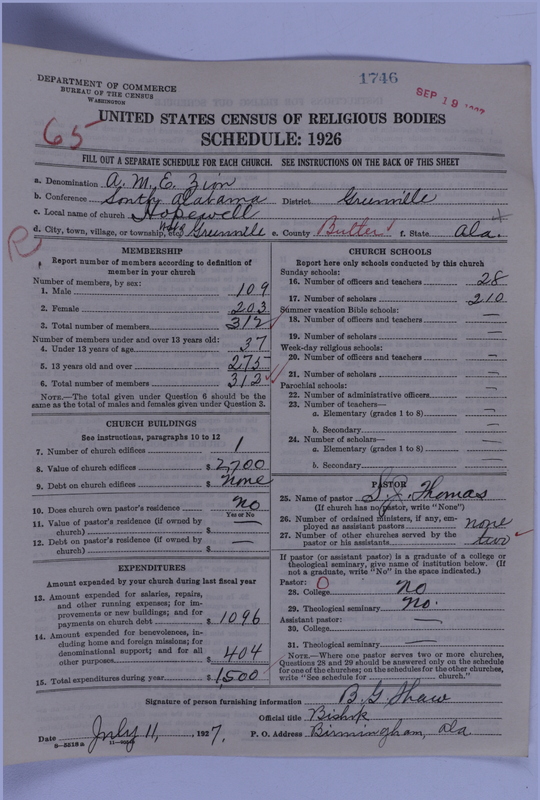 1746
DEPARTMENT OF COMMERCE
BUREAU OF THE CENSUS
WASHINGTON
SEP 19 1927
65
UNITED STATES CENSUS OF RELIGIOUS BODIES
SCHEDULE: 1926
FILL OUT A SEPARATE SCHEDULE FOR EACH CHURCH. SEE INSTRUCTIONS ON THE BACK OF THIS SHEET
a. Denomination A. M. E. Zion
b. Conference South Alabama District Greenville
c. Local name of church Hopewell
d. City, town, village, or township, etc. Greenville e. County Butler f. State Ala.
R
MEMBERSHIP
Report number of members according to definition of
member in your church
Number of members, by sex:
1. Male 109
2. Female 203
3. Total number of members 312
Number of members under and over 13 years old:
4. Under 13 years of age 37
5. 13 years old and over 275
6. Total number of members 312
NOTE.—The total given under Question 6 should be
same as the total of males and females given under Question 3.
CHURCH BUILDINGS
See instructions, paragraphs 10 to 12
7. Number of church edifices 1
8. Value of church edifices $ 2,700
9. Debt on church edifices $ none
10. Does church own pastor's residence no
Yes or No
11. Value of pastor's residence (if owned by
church) $ —
12. Debt on pastor's residence (if owned by
church) $ —
EXPENDITURES
Amount expended by your church during last fiscal year
13. Amount expended for salaries, repairs,
and other running expenses; for im-
provements or new buildings; and for
payments on church debt $ 1096
14. Amount expended for benevolences, in-
cluding home and foreign missions; for
denominational support; and for all
other purposes $ 404
15. Total expenditures during year $ 1,500
CHURCH SCHOOLS
Report here only schools conducted by this church
Sunday schools:
16. Number of officers and teachers 28
17. Number of scholars 210
Summer vacation Bible schools:
18. Number of officers and teachers —
19. Number of scholars —
Week-day religious schools:
20. Number of officers and teachers —
21. Number of scholars —
Parochial schools:
22. Number of administrative officers —
23. Number of teachers—
a. Elementary (grades 1 to 8) —
b. Secondary —
24. Number of scholars—
a. Elementary (grades 1 to 8) —
b. Secondary —
PASTOR
25. Name of pastor S. J. Thomas
(If church has no pastor, write "None")
26. Number of ordained ministers, if any, em-
ployed as assistant pastors none
27. Number of other churches served by the
pastor or his assistants two
If pastor (or assistant pastor) is a graduate of a college or
theological seminary, give name of institution below. (If
not a graduate, write "No" in the space indicated.)
Pastor: 0
28. College no
29. Theological seminary no.
Assistant pastor:
30. College —
31. Theological seminary —
NOTE.—Where one pastor serves two or more churches,
Questions 28 and 29 should be answered only on the schedule
for one of the churches; on the schedules for the other churches,
write "See schedule for church."
Signature of person furnishing information B. G. Shaw
Official title Bishop
Date July 11, 1927. P. O. Address Birmingham, Ala.